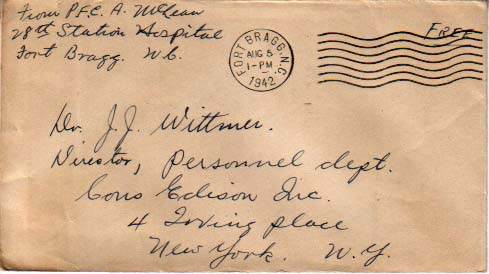 From P.F.C. A. McLean
28th Station Hospital
Fort Bragg. N.C.
FORT BRAGG, N.C.
AUG 5
1-PM
1942
FREE
Dr. J.J. Wittmer.
Director, Personnel dept.
Cons Edison Inc.
4 Irving place
New York. N.Y.